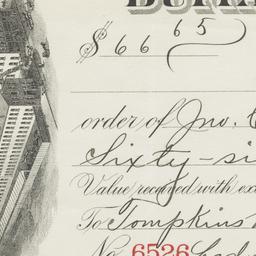 $ 66 65
order of Jno.
Sixty-si
Value received with ex
To Tompkins
No. 6526